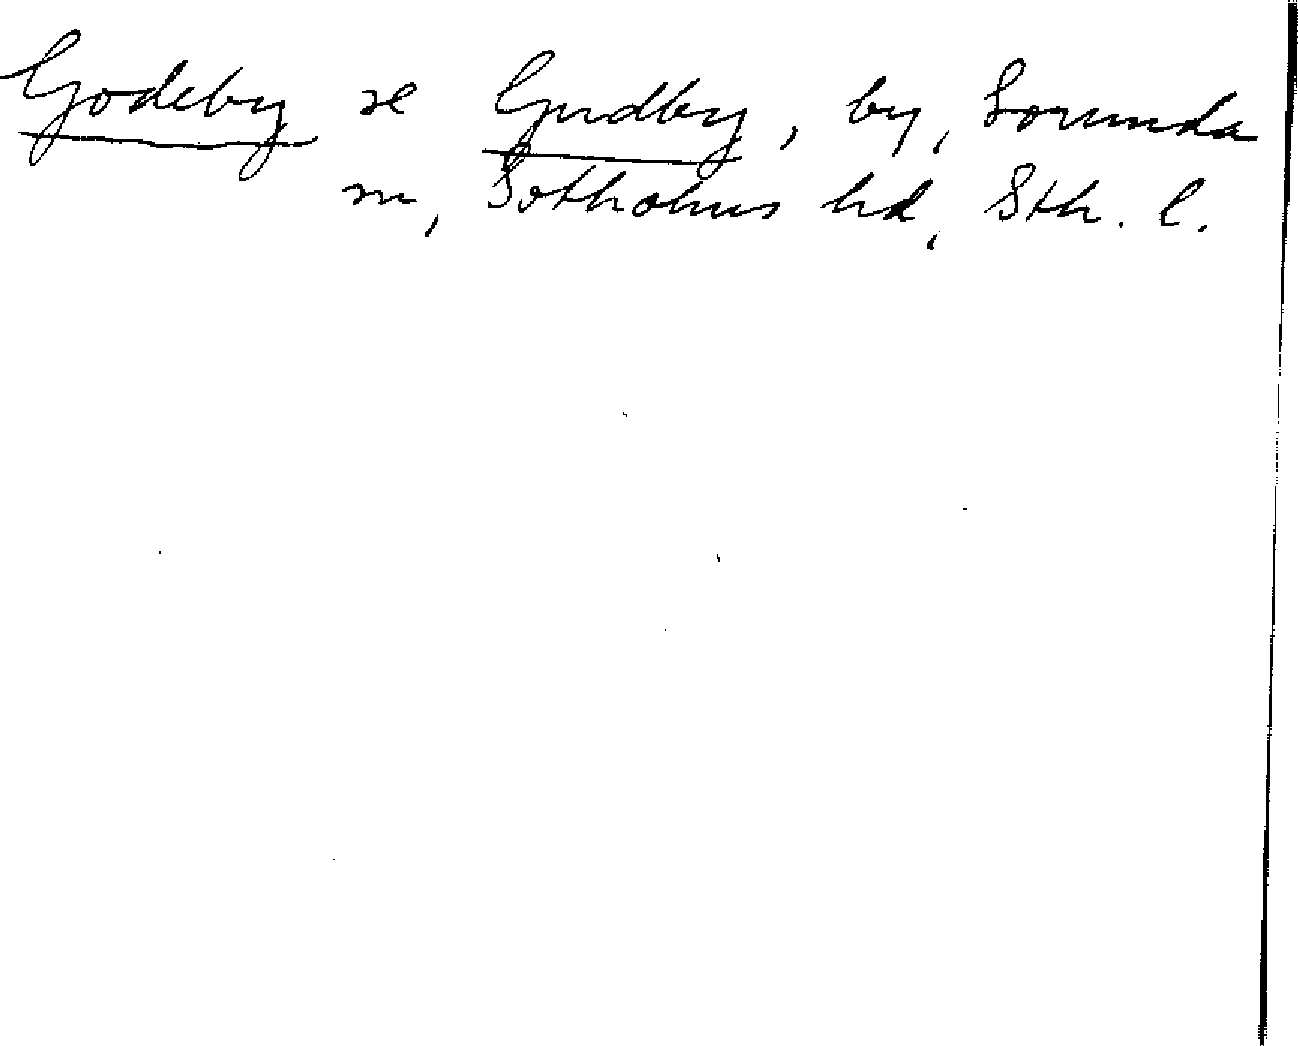 Godeby se Gudby, by, Sorunda
sn, Sotholms hd, Sth. l.